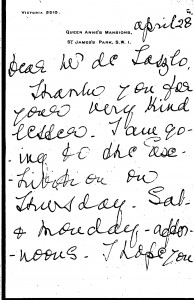 VICTORIA 2215.
QUEEN ANNE'S MANSIONS,
ST JAMES'S PARK, S.W.1.
April 28
Dear Mr de Laszlo.
Thank you for
your very kind
letter. I am go-
ing to the ex-
hibition on
Thursday. Sat
& Monday - after-
noons. I hope you